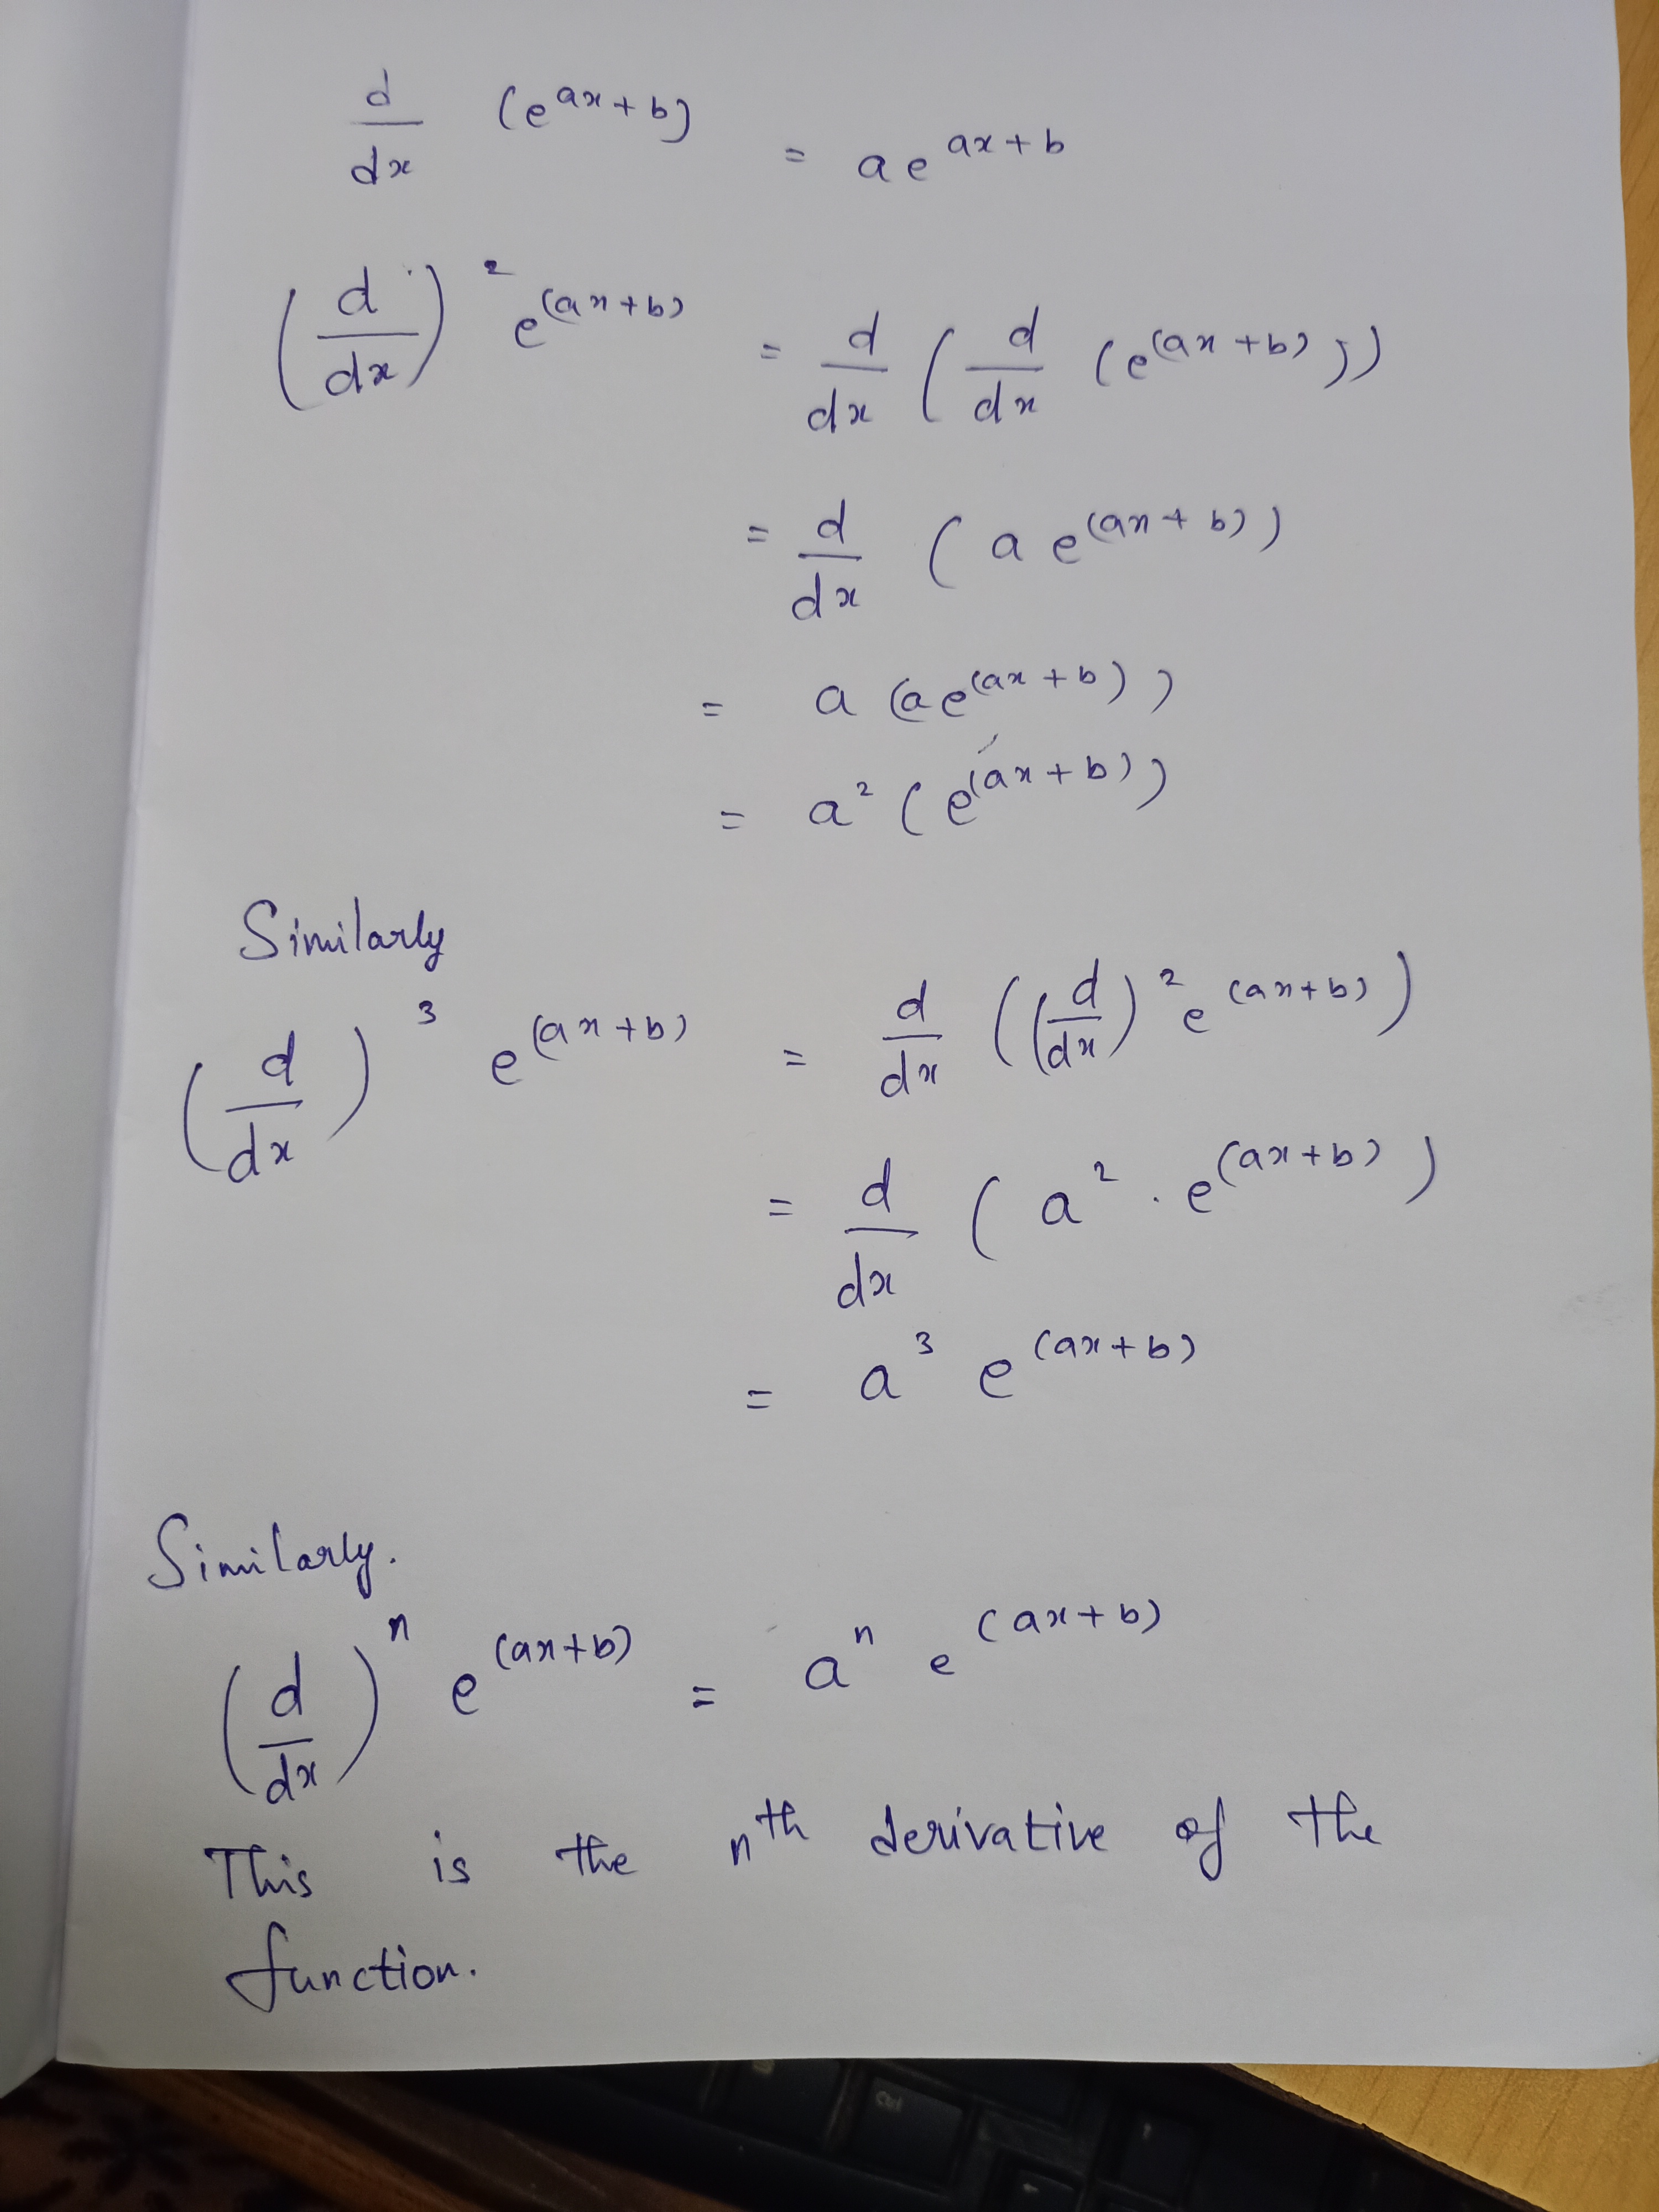 d/dx (e^(ax+b)) = ae^(ax+b)
(d/dx)² e^(ax+b) = d/dx (d/dx (e^(ax+b)))
= d/dx (a e^(ax+b))
= a (a e^(ax+b))
= a² (e^(ax+b))
Similarly
(d/dx)³ e^(ax+b) = d/dx ((d/dx)² e^(ax+b))
= d/dx (a² . e^(ax+b))
= a³ e^(ax+b)
Similarly.
(d/dx)ⁿ e^(ax+b) = aⁿ e^(ax+b)
This is the nth derivative of the
function.
Ctrl